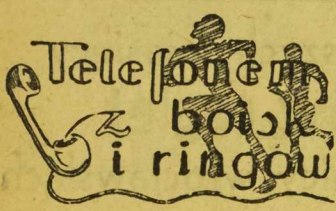 Telefonem
z boisk
i ringów